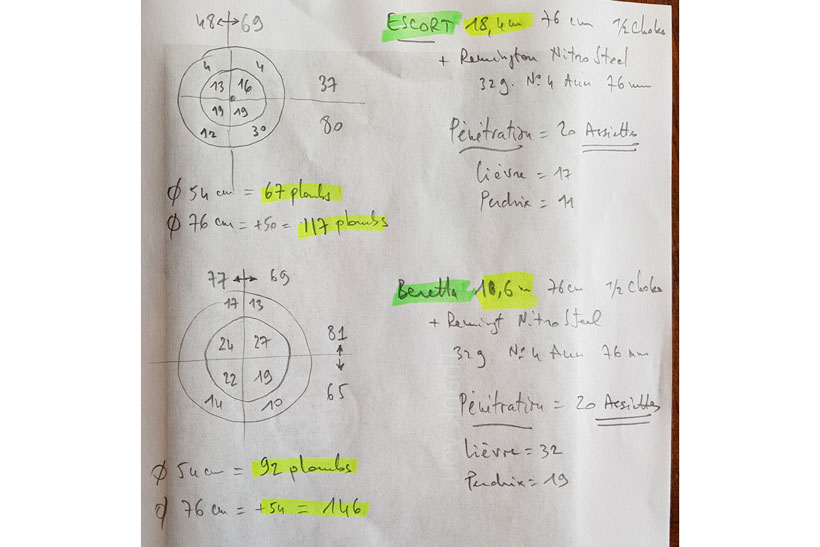 48 ↔ 69
4 4
13 16
19 19
12 30
37
80
ESCORT 18,4 76 cm 1/2 Choke
+ Remington Nitro Steel
32 g. N° 4 Acier 76 mm
Pénétration = 20 Assiettes
Lièvre = 17
Perdrix = 11
Ø 54 cm = 67 plombs
Ø 76 cm = +50 = 117 plombs
77 ↔ 69
17 13
24 27
22 19
14 10
81
65
Beretta 18,6 76 cm 1/2 Choke
+ Remingt Nitro Steel
32 g. N° 4 Acier 76 mm
Pénétration = 20 Assiettes
Lièvre = 32
Perdrix = 19
Ø 54 cm = 92 plombs
Ø 76 cm = +54 = 146